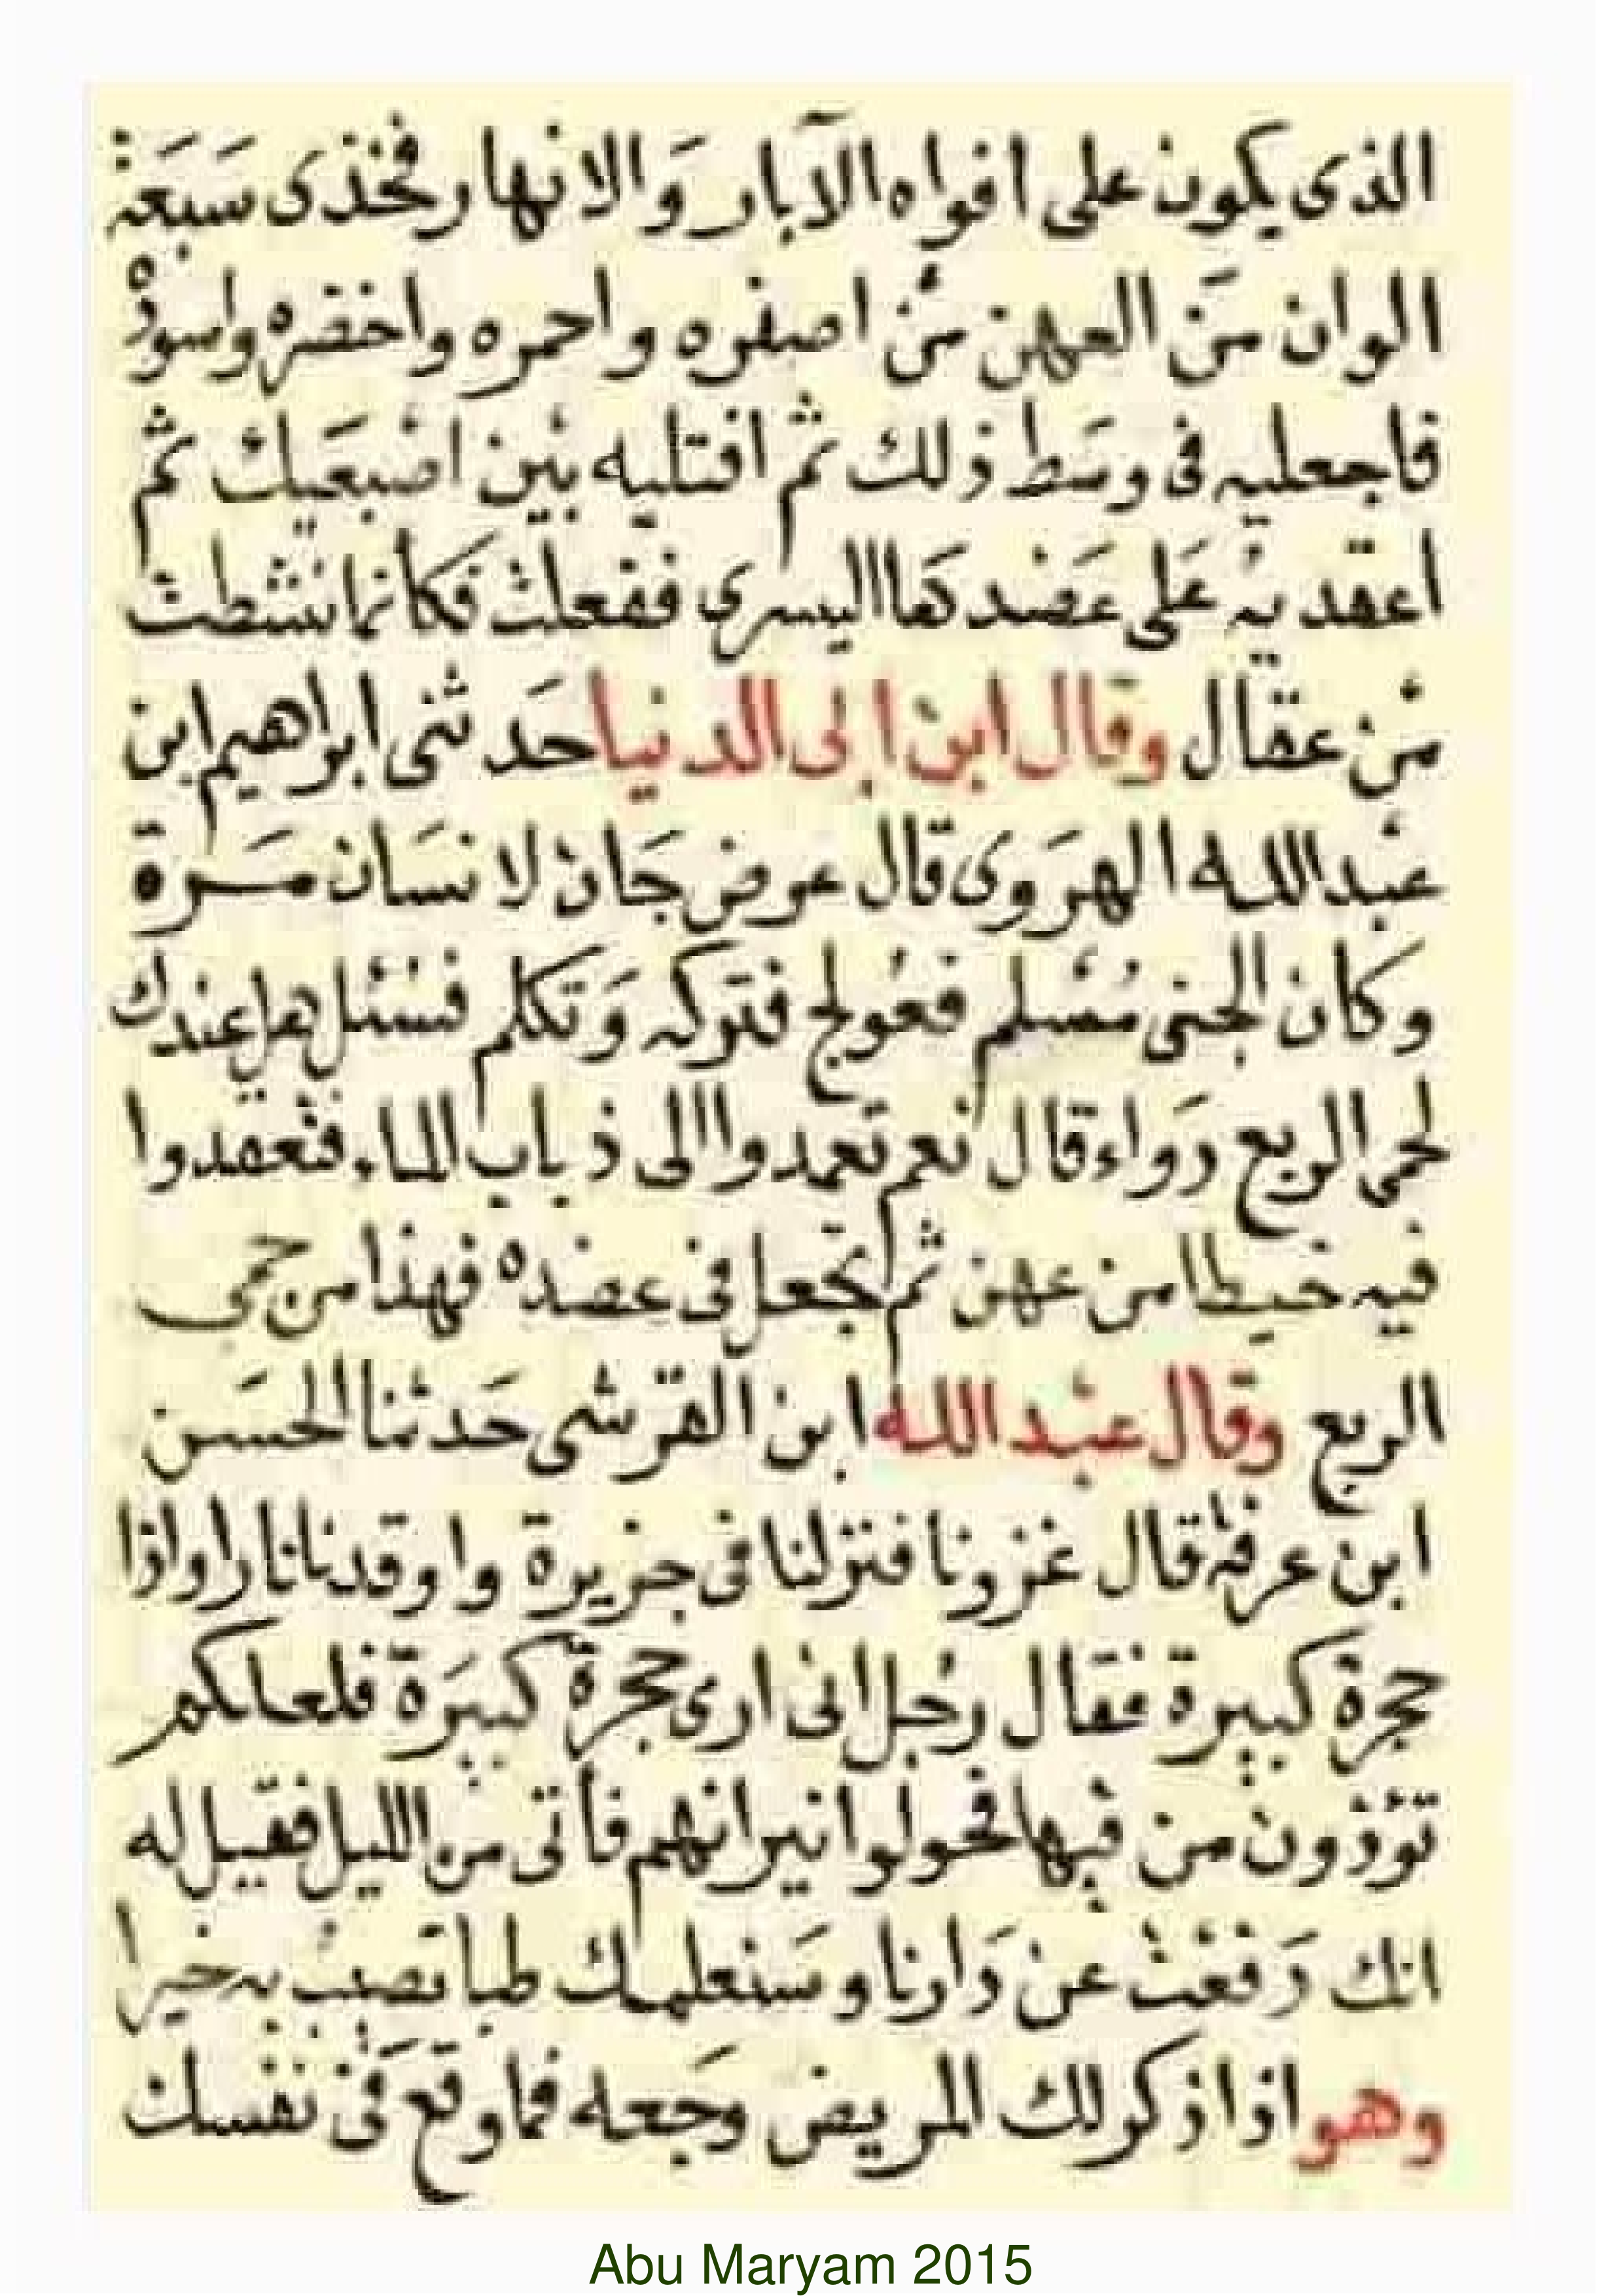 الذى يكون على افواه الآبار وَالانهار فخذى سَبعَة
الوان مَن العهن مَنْ اصفره واحمره واخضره واسوده
فاجعليه فى وسَط ذلك ثم افتليه بيْن اصْبعَيك ثم
اعقديه عَلى عَضدهَا اليسرى ففعلتْ فكانما نشطت
منْ عقال وقال ابن ابى الدنيا حَدثنى ابراهيم ابن
عبْدالله الهرَوى قال عرض جَان لانسَان مَرة
وكان الجنى مُسْلم فعُولج فتركه وَتكلم فسئل هل عندك
لحمى الربع دَواء قال نعم تعمدوا الى ذباب الماء فتعقدوا
فيه خيطا من عهن ثم تجعل فى عضده فهذا من حمى
الربع وقال عبْدالله ابن القرشى حَدثنا الحسَن
ابن عرفة قال غزونا فنزلنا فى جزيرة واوقدنا نارا واذا
حجرة كبيرة فقال رجُل انى ارى حجرة كبيَرة فلعلكم
تؤذون من فيها فحولوا نيرانهم فأتى من الليل فقيل له
انك دَفعْتْ عن دَارنا وسَنعلمك طبا تصبْ به خيرا
وهو اذا ذكر لك المريض وجَعه فما وقع فى نفسك
Abu Maryam 2015